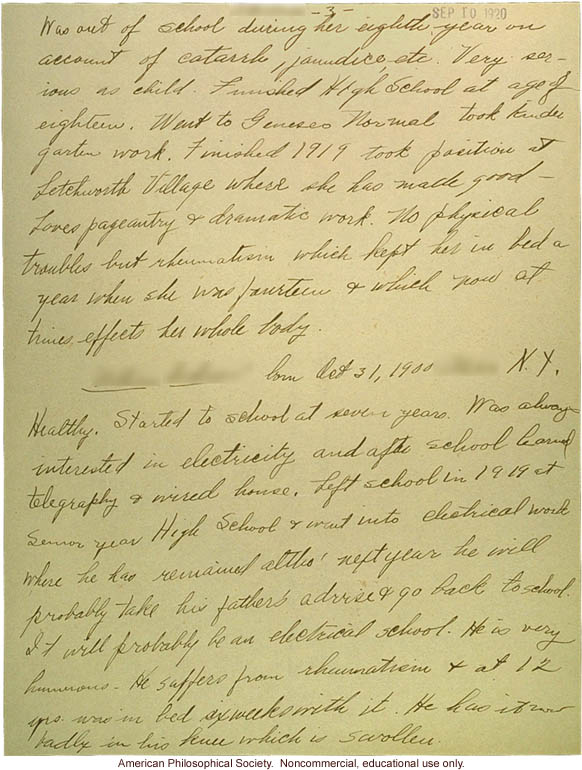 -3-
SEP 10 1920
Was out of school during her eighth year on
account of catarrh, jaundice, etc. Very ser-
ious as child. Finished High School at age of
eighteen. Went to Geneseo Normal took kinder
garten work. Finished 1919 took position at
Letchworth Village where she has made good -
Loves pageantry & dramatic work. No physical
troubles but rheumatism which kept her in bed a
year when she was fourteen & which now at
times effects her whole body.
born Oct 31, 1900 N.Y.
Healthy. Started to school at seven years. Was always
interested in electricity and after school learned
telegraphy & wired house. Left school in 1919 at
Senior year High School & went into electrical work
where he has remained altho' next year he will
probably take his father's advise & go back to school.
It will probably be an electrical school. He is very
humorous - He suffers from rheumatism & at 12
yrs. was in bed six weeks with it. He has it now
badly in his knee which is swollen.
American Philosophical Society. Noncommercial, educational use only.